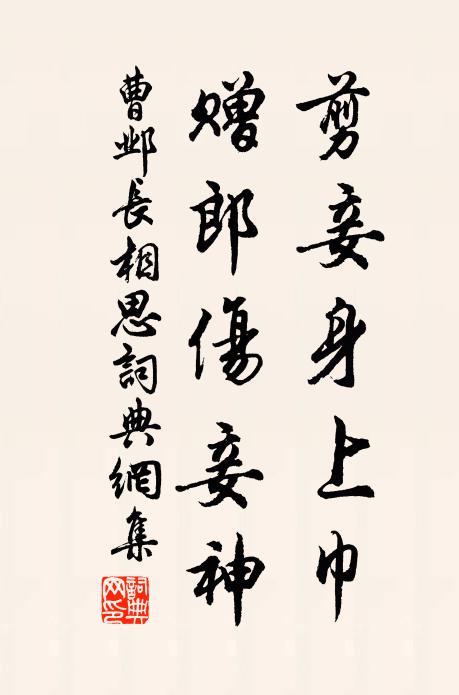 剪妾身上巾
贈郎傷妾神
曹邺長相思詞典網集
詞典網印